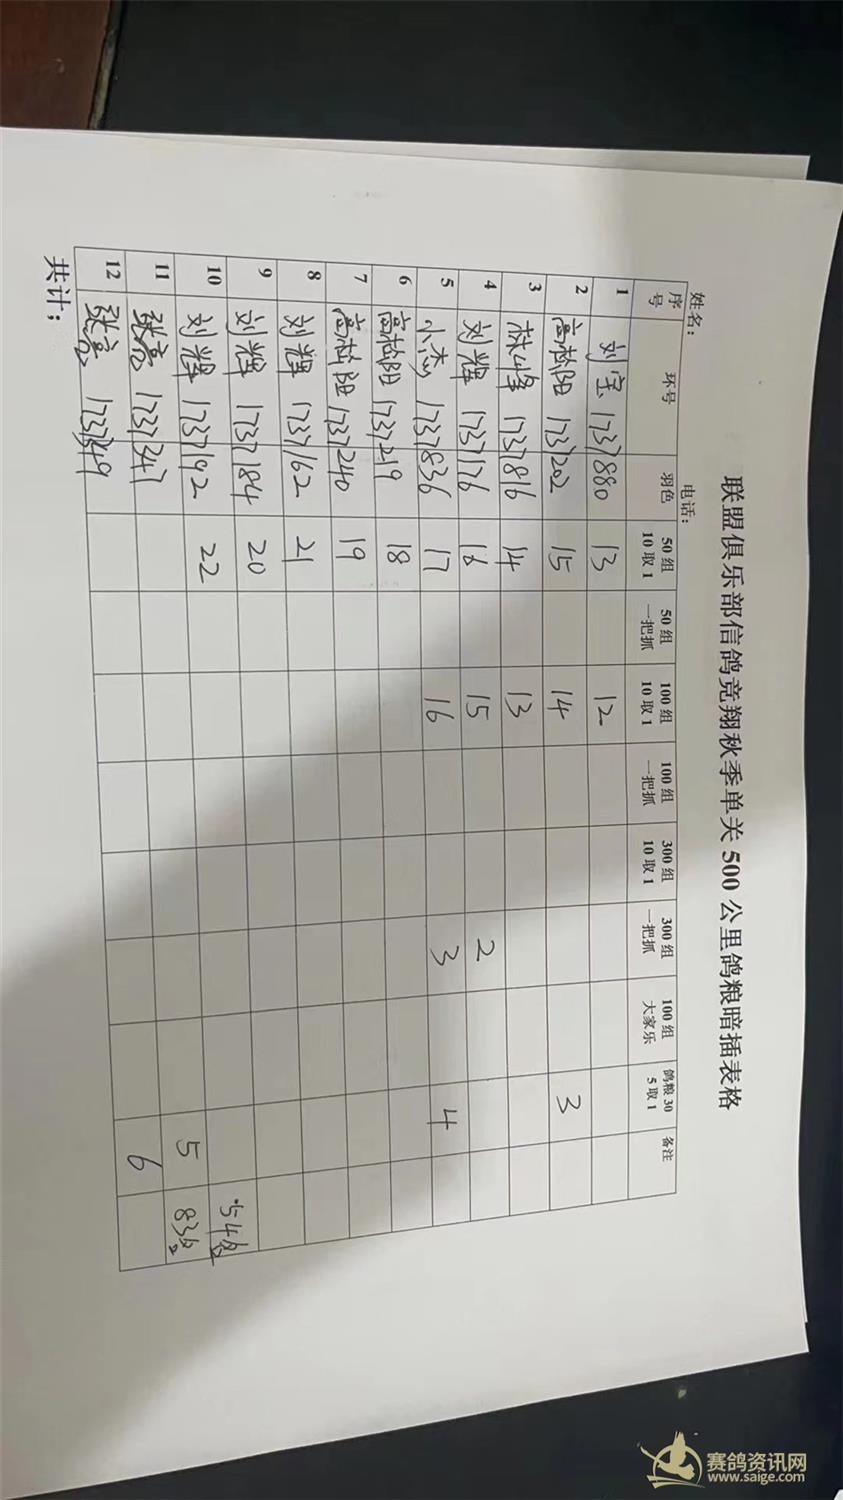 联盟俱乐部信鸽竞翔秋季单关500公里鸽粮暗插表格
姓名： 电话：
序号 环号 羽色 50组10取1 50组一把抓 100组10取1 100组一把抓 300组10取1 300组一把抓 100组大家乐 鸽粮30 5取1 备注
1 刘宝 1737880 13 12
2 高松阳 1737202 15 14 3
3 林峰 1737816 14 13
4 刘辉 1737176 16 15 2
5 小杰 1737836 17 16 3 4
6 高松阳 1737219 18
7 高松阳 1737240 19
8 刘辉 1737162 21
9 刘辉 1737184 20
10 刘辉 1737192 22
11 张亮 1737347 5
12 张亮 1737349 6
共计：
赛鸽资讯网
www.saige.com